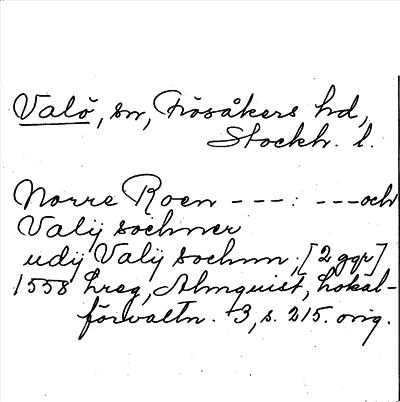 Valö, sn, Frösåkers hd,
Stockh. l.
Norre Roen ---: ---och
Valÿ sochner
udÿ Valÿ sochnn, [2 ggr]
1558 hreg, Almquist, Lokal-
förvaltn. +3, s. 215. orig.